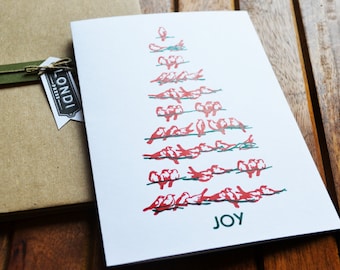 LONDI
JOY